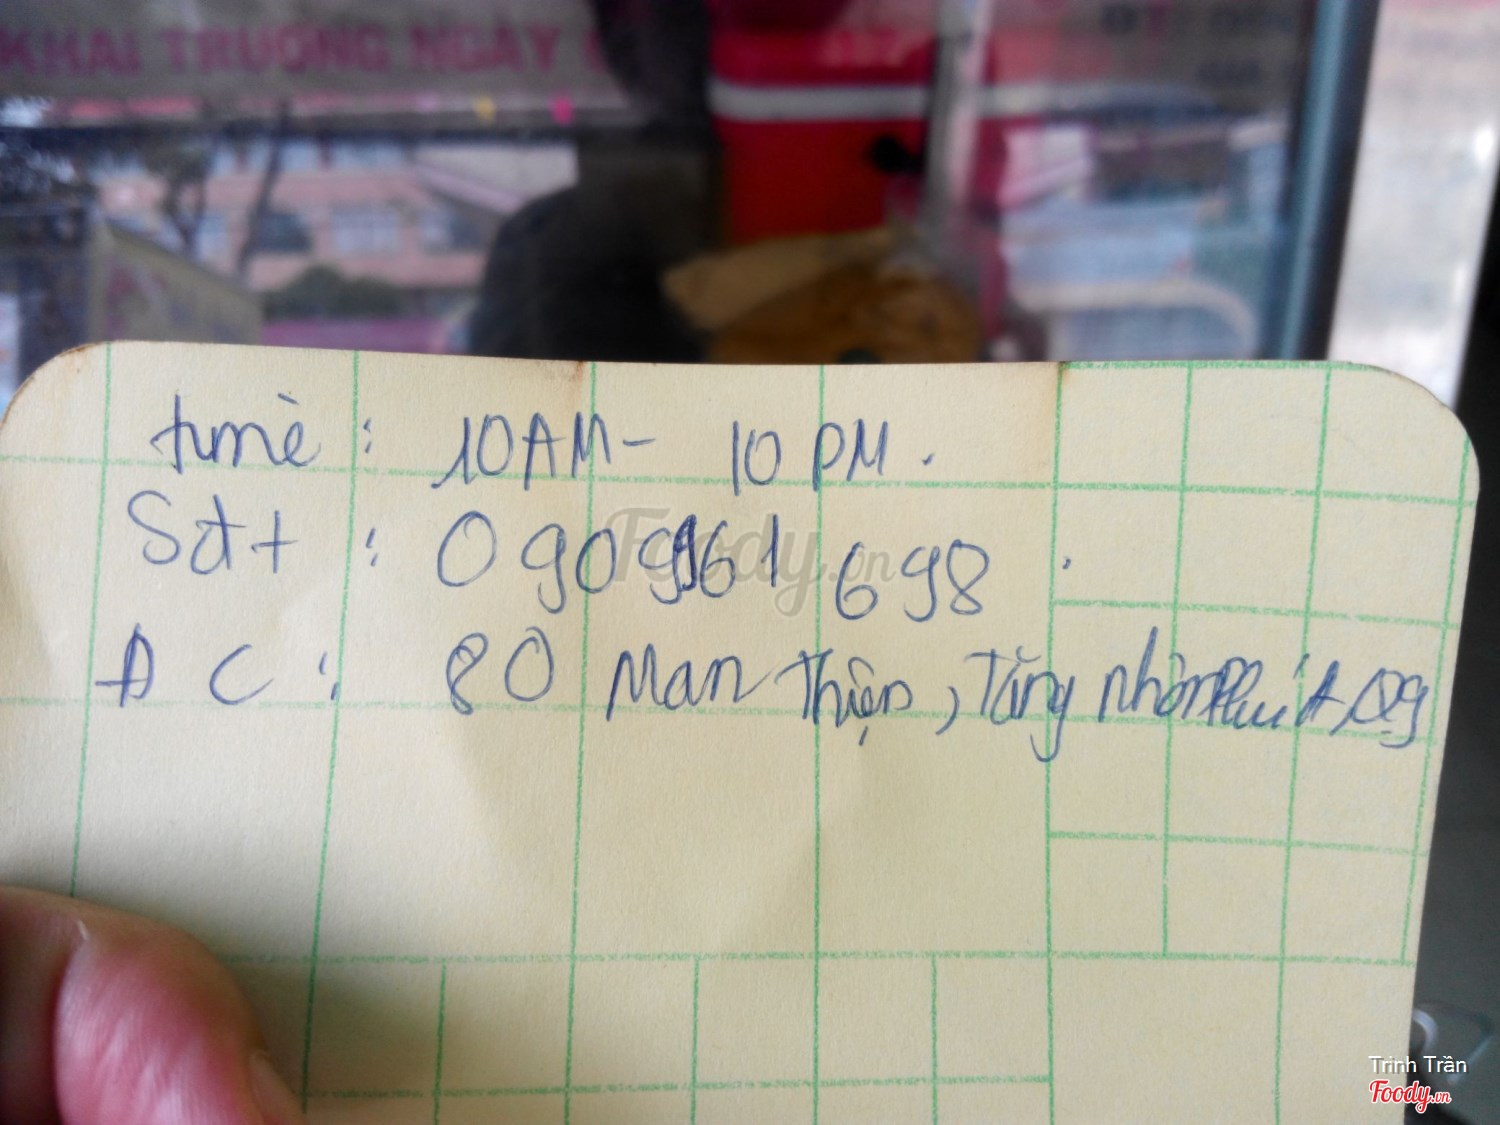 KHAI TRƯƠNG NGÀY
time : 10AM - 10 PM .
Sđt : 0909961 698 .
ĐC : 80 Man Thiện , Tăng nhơn Phú A, Q9
Foody.vn
Trinh Trần
Foody.vn